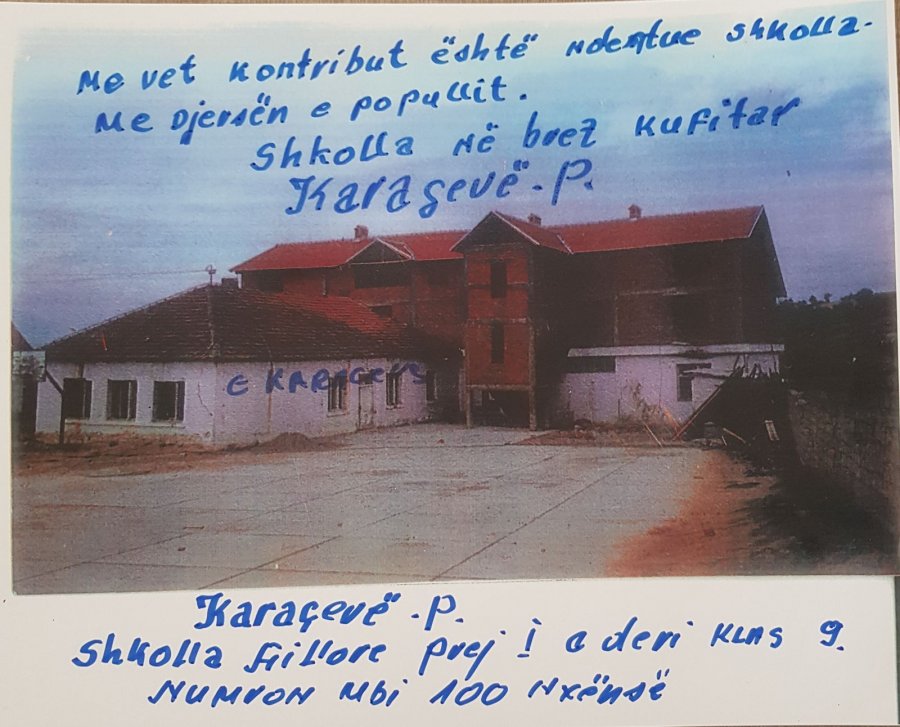 Me vet kontribut është ndertue shkolla.
Me Djersën e popullit.
Shkolla në brez kufitar
Karaçevë.P.
E KARAÇEVS
Karaçevë.P.
Shkolla fillore prej I a deri klas 9.
Numron mbi 100 Nxënsë